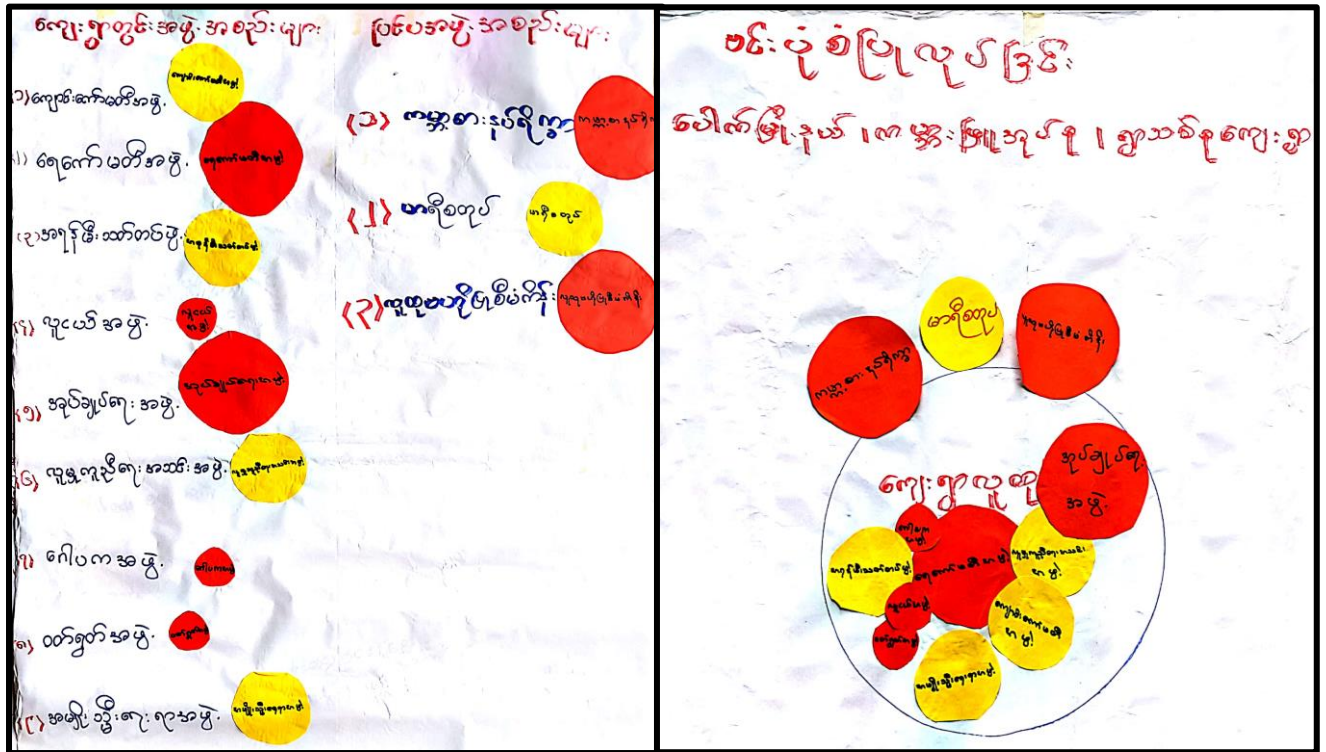 ကျေးရွာတွင်းအဖွဲ့အစည်းများ
(၁) ကျောင်းကော်မတီအဖွဲ့
ကျောင်းကော်မတီအဖွဲ့
(၂) ရေကော်မတီအဖွဲ့
ရေကော်မတီအဖွဲ့
(၃) အရန်မီးသတ်တပ်ဖွဲ့
အရန်မီးသတ်တပ်ဖွဲ့
(၄) လူငယ်အဖွဲ့
လူငယ်အဖွဲ့
(၅) အုပ်ချုပ်ရေးအဖွဲ့
အုပ်ချုပ်ရေးအဖွဲ့
(၆) လူမှုကူညီရေးအသင်းအဖွဲ့
လူမှုကူညီရေးအသင်းအဖွဲ့
(၇) ဂေါပကအဖွဲ့
ဂေါပကအဖွဲ့
(၈) ဝတ်ရွတ်အဖွဲ့
ဝတ်ရွတ်အဖွဲ့
(၉) အမျိုးသ္မီးရေးရာအဖွဲ့
အမျိုးသ္မီးရေးရာအဖွဲ့
ပြင်ပအဖွဲ့အစည်းများ
(၁) ကမ္ဘာ့စားနပ်ရိက္ခာ
ကမ္ဘာ့စားနပ်ရိက္ခာ
(၂) မာရီစတုပ်
မာရီစတုပ်
(၃) လူထုဗဟိုပြုစီမံကိန်း
လူထုဗဟိုပြုစီမံကိန်း
ဗင်းပုံစံပြုလုပ်ခြင်း
ပေါက်မြို့နယ်၊ ကမ္ဘားဖြူအုပ်စု၊ ရွာသစ်ကျေးရွာ
မာရီစတုပ်
လူထုဗဟိုပြုစီမံကိန်း
ကမ္ဘာ့စားနပ်ရိက္ခာ
ကျေးရွာလူထု
အုပ်ချုပ်ရေး
အဖွဲ့
ဂေါပက
အဖွဲ့
အရန်မီးသတ်တပ်ဖွဲ့
ရေကော်မတီအဖွဲ့
လူမှုကူညီရေးအသင်း
အဖွဲ့
လူငယ်အဖွဲ့
ကျောင်းကော်မတီ
အဖွဲ့
ဝတ်ရွတ်အဖွဲ့
အမျိုးသ္မီးရေးရာအဖွဲ့